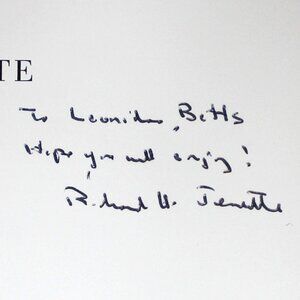 TE
To Leonidas Betts
Hope you will enjoy!
Richard H. Jenrette